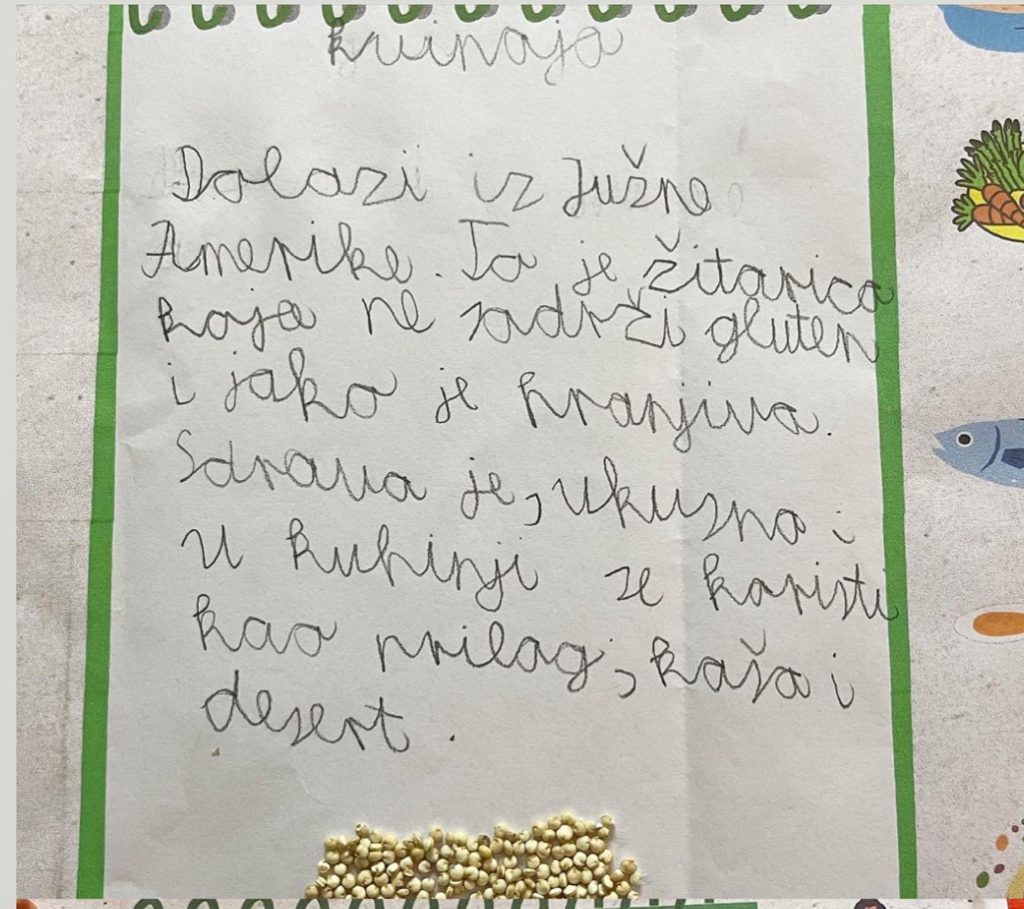 kvinoja
Dolazi iz Južne
Amerike. To je žitarica
koja ne sadrži gluten
i jako je hranjiva.
Zdrava je, ukusna i
u kuhinji se koristi
kao prilog, kaša i
desert.